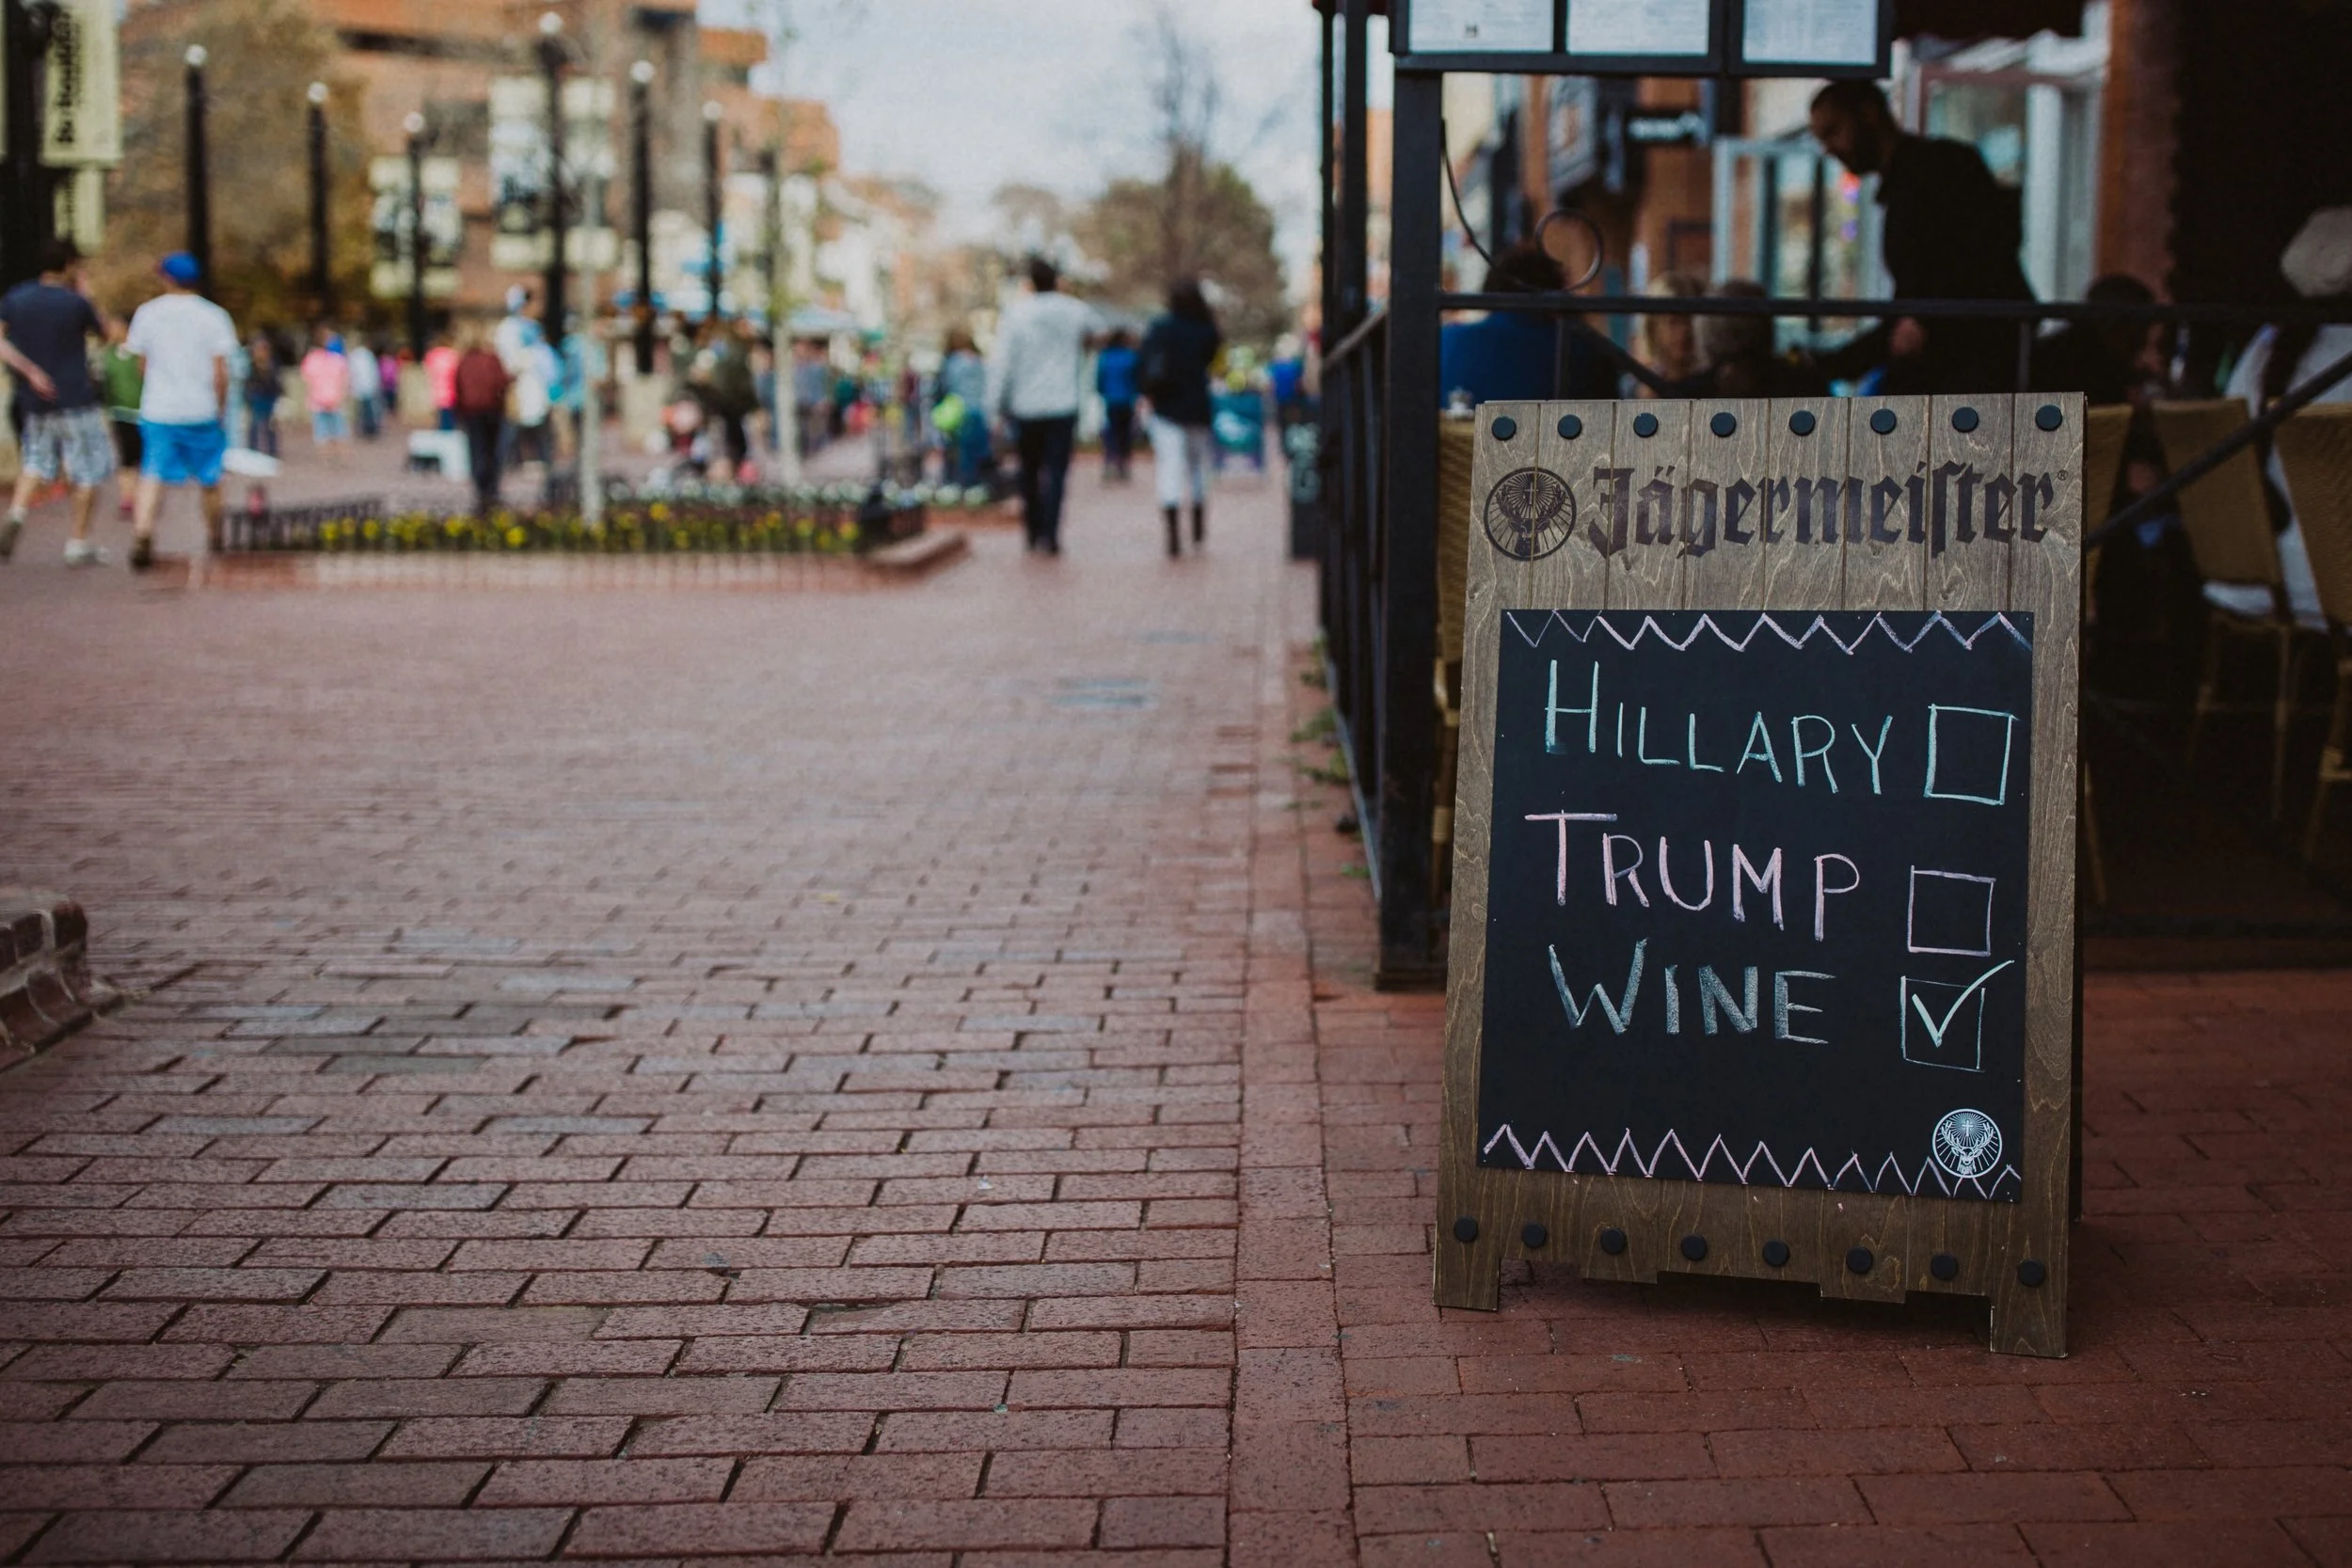 Jägermeister®
HILLARY
TRUMP
WINE